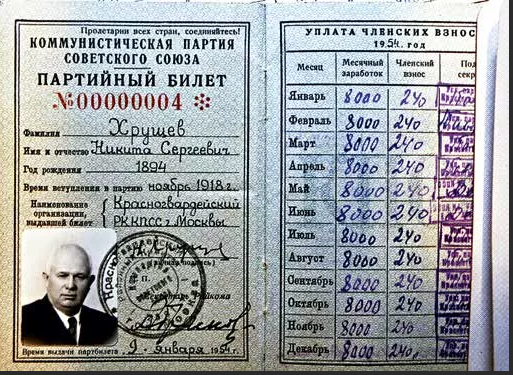 Пролетарии всех стран, соединяйтесь!
КОММУНИСТИЧЕСКАЯ ПАРТИЯ
СОВЕТСКОГО СОЮЗА
ПАРТИЙНЫЙ БИЛЕТ
№00000004
Фамилия Хрущев
Имя и отчество Никита Сергеевич
Год рождения 1894
Время вступления в партию ноябрь 1918 г.
Наименование организации, выдавшей билет Красногвардейский
РК КПСС г. Москвы
(личная подпись)
М. П.
Секретарь райкома
Время выдачи партбилета 9 января 1954 г.
УПЛАТА ЧЛЕНСКИХ ВЗНОС
1954 год
Месяц Месячный заработок Членский взнос Под секр
Январь 8000 240
Февраль 8000 240
Март 8000 240
Апрель 8000 240
Май 8000 240
Июнь 8000 240
Июль 8000 240
Август 8000 240
Сентябрь 8000 240
Октябрь 8000 240
Ноябрь 8000 240
Декабрь 8000 240